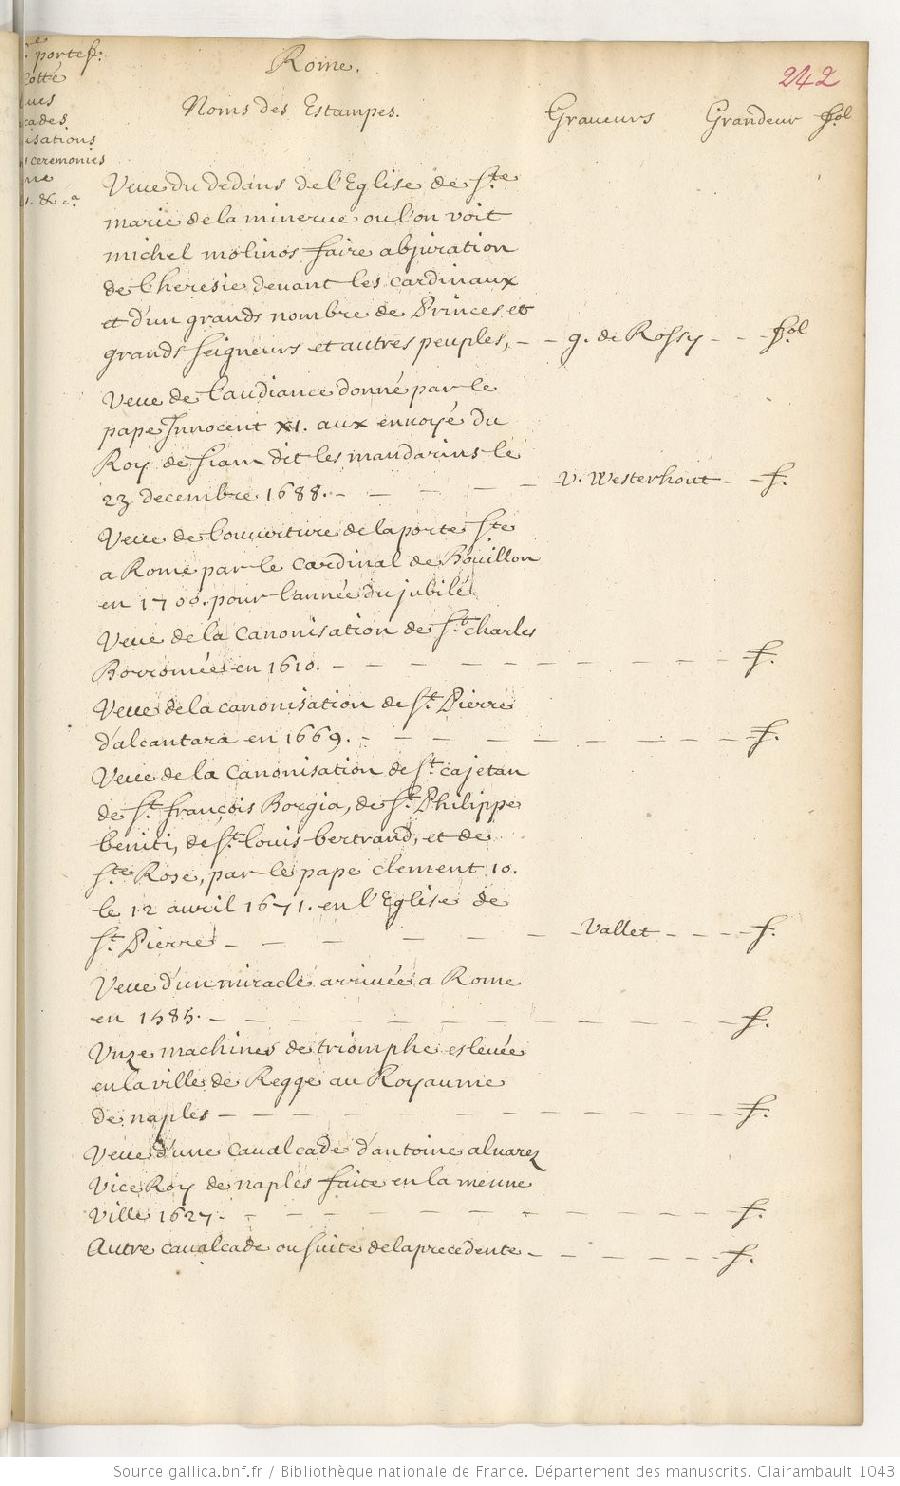 portef.
cotté
ues
cades
isations
ceremonies
me
&.ca
Rome.
242
Noms des Estampes. Graueurs Grandeur fol
Veue du dedans de l'Eglise de Ste
marie de la minerue ou l'on voit
michel molinos faire abjuration
de l'heresie deuant les cardinaux
et d'un grands nombre de Princes et
grands seigneurs et autres peuples, - - g. de Rossy - - - fol
Veue de l'audiance donné par le
pape Innocent XI. aux enuoyé du
Roy de siam dit les mandarins le
23 decembre 1688. - - - - - v. Westerhout - - f.
Veue de l'ouuerture de la porte Ste
a Rome par le cardinal de Bouillon
en 1700. pour l'année du jubilé
Veue de la canonisation de St. charles
Borromée en 1610. - - - - - - - - - - f.
Veue de la canonisation de St. Pierre
d'alcantara en 1669. - - - - - - - - - f.
Veue de la canonisation de St. cajetan
de St. françois Borgia, de St. Philippe
beniti, de St. louis bertrand, et de
Ste Rose, par le pape clement 10.
le 12 auril 1671. en l'Eglise de
St. Pierre - - - - - - Vallet - - - - f.
Veue d'un miracle arriuée a Rome
en 1585. - - - - - - - - - - f.
Vnze machines de triomphe esleuée
en la ville de Regge au Royaume
de naples - - - - - - - - - - f.
Veue d'une caualcade d'antoine aluarez
Vice Roy de naples faite en la meme
Ville 1627. - - - - - - - - - f.
Autre caualcade ou suite de la precedente - - - - - f.
Source gallica.bnf.fr / Bibliothèque nationale de France. Département des manuscrits. Clairambault 1043